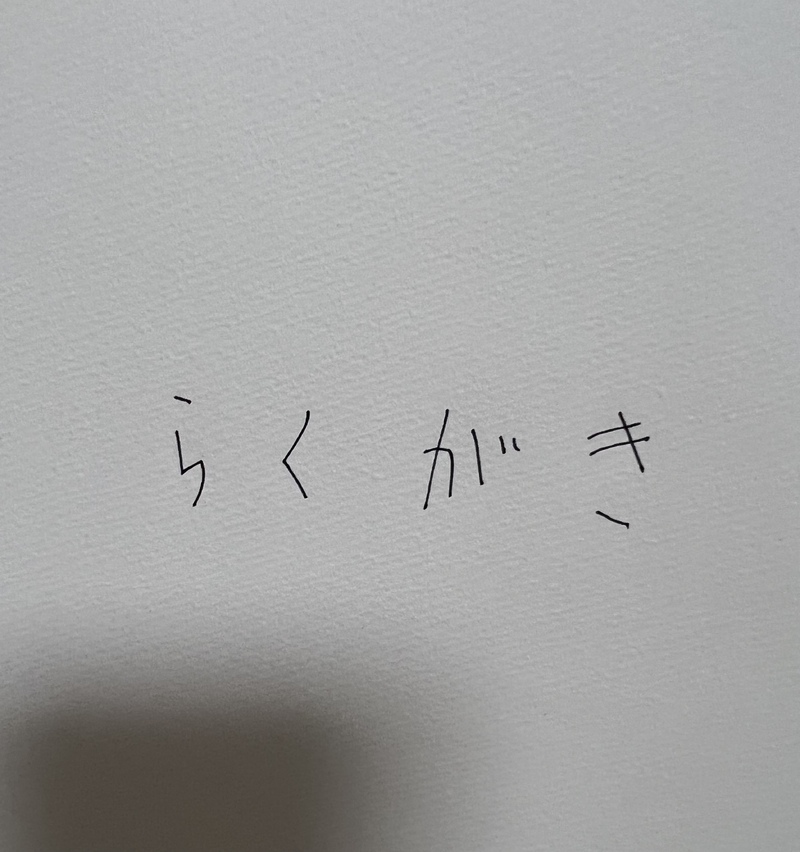 らくがき